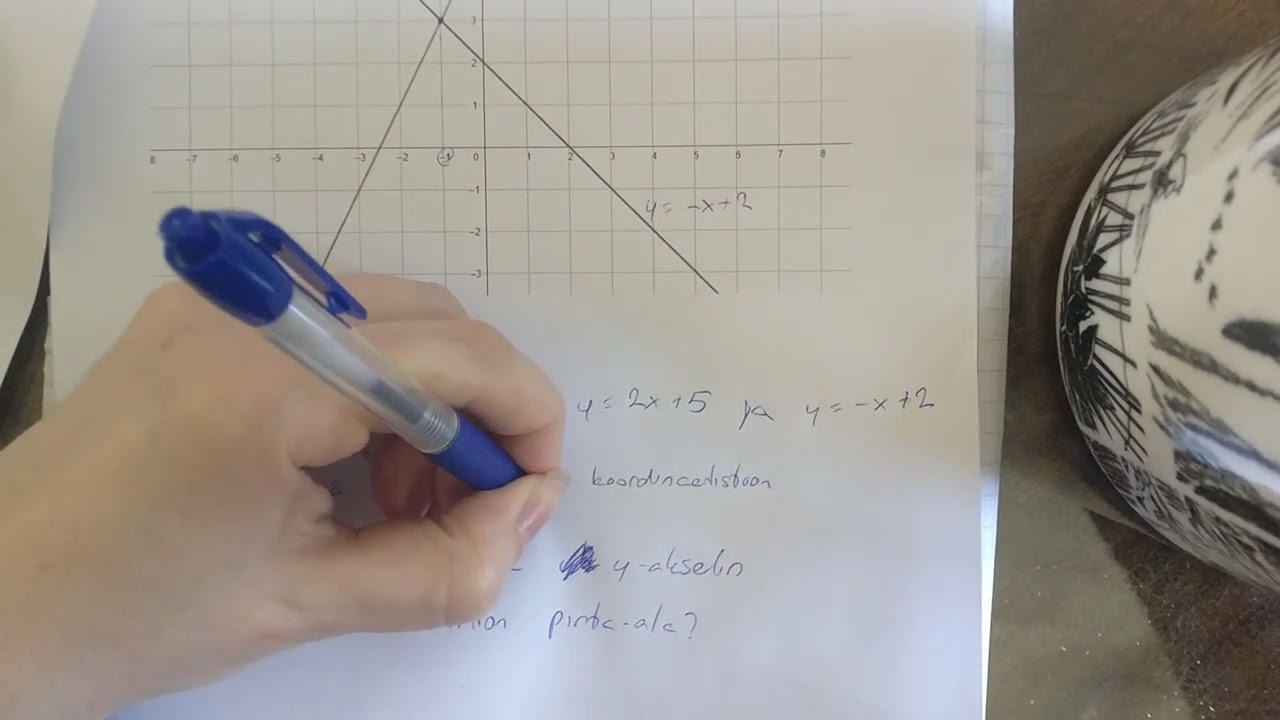 3
2
1
8 -7 -6 -5 -4 -3 -2 -1 0 1 2 3 4 5 6 7 8
-1
y = -x+2
-2
-3
y = 2x+5 ja y = -x+2
koordinaatistoon
y-akselin
pinta-ala?